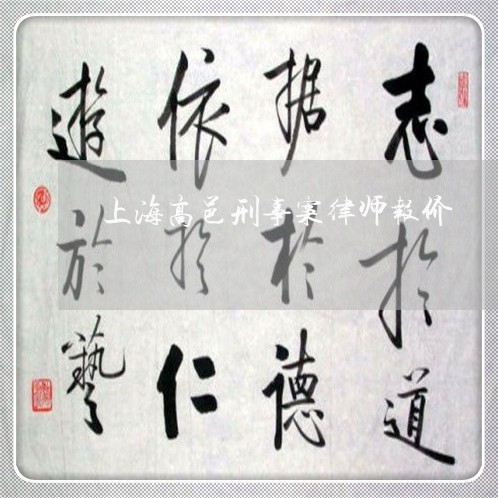 志於道
据於德
依於仁
遊於藝
上海高邑刑事案律师报价